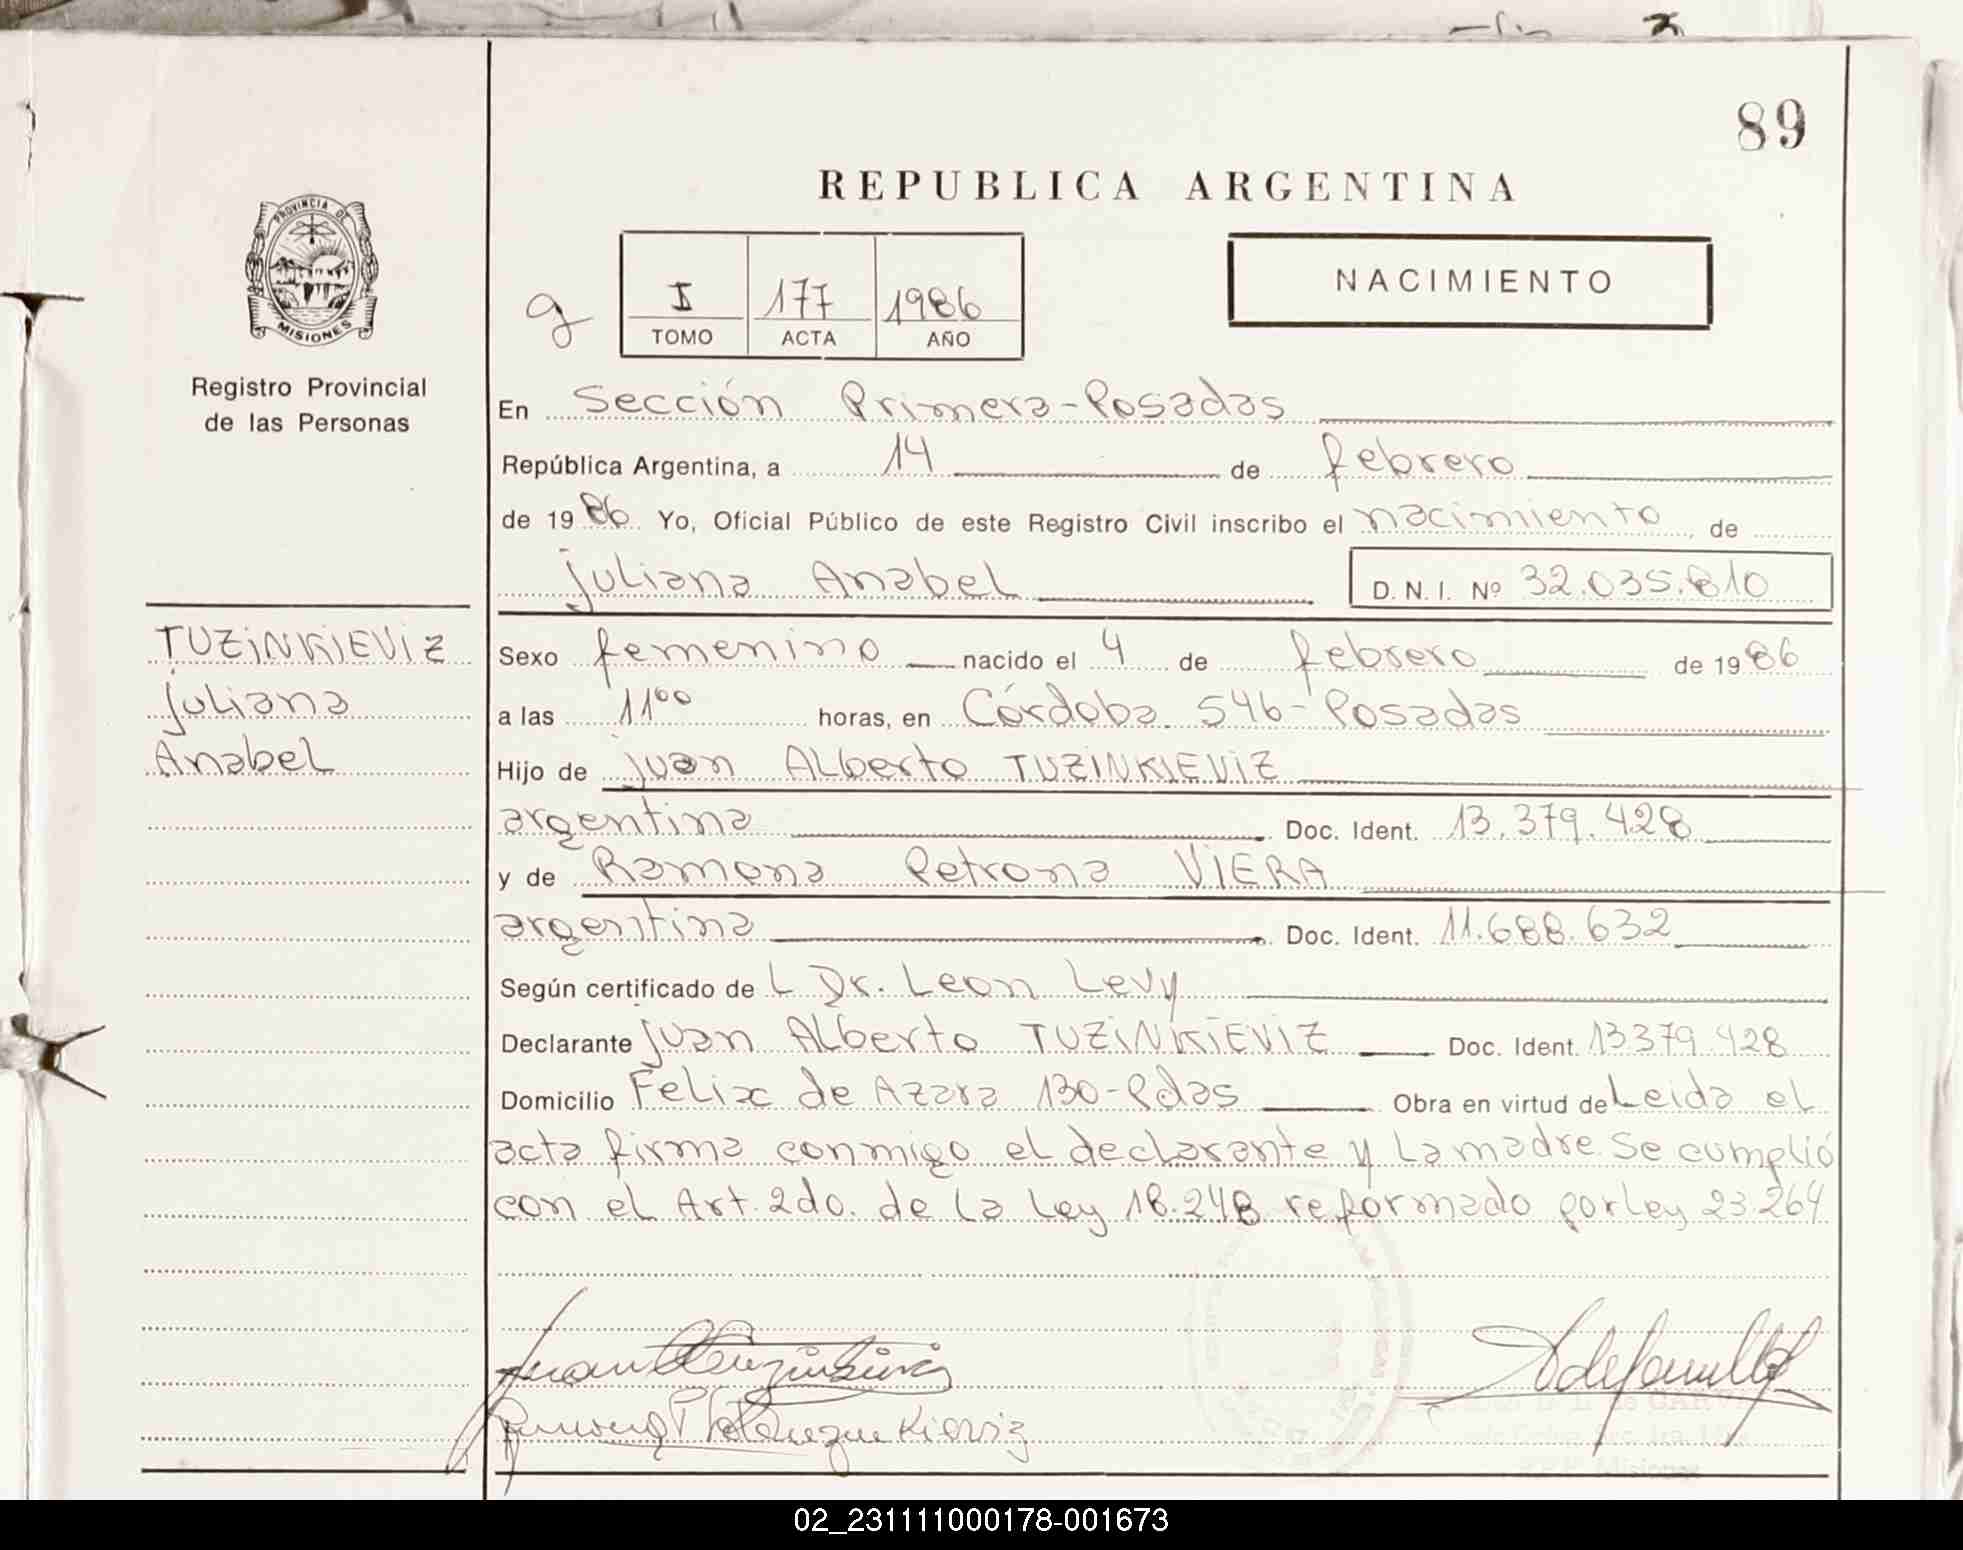 89
REPUBLICA ARGENTINA
PROVINCIA DE
MISIONES
Registro Provincial
de las Personas
I 177 1986
TOMO ACTA AÑO
NACIMIENTO
En Sección Primera-Posadas
República Argentina, a 14 de febrero
de 1986 Yo, Oficial Público de este Registro Civil inscribo el nacimiento, de
juliana Anabel D. N. I. Nº 32.035.810
TUZiNKiEViz
juliana
Anabel
Sexo femenino nacido el 4 de febrero de 1986
a las 11⁰⁰ horas, en Córdoba 546-Posadas
Hijo de juan Alberto TUZiNKIEViZ
argentina Doc. Ident. 13.379.428
y de Ramona Petrona ViERA
argentina Doc. Ident. 11.688.632
Según certificado de L Dr. Leon Levy
Declarante juan Alberto TUZiNKiEViZ Doc. Ident. 13379.428
Domicilio Felix de Azara 130-Pdas Obra en virtud de Leida el
acta firma conmigo el declarante y La madre. Se cumplió
con el Art. 2do. de La Ley 18.248 reformado por Ley 23.264
02_231111000178-001673